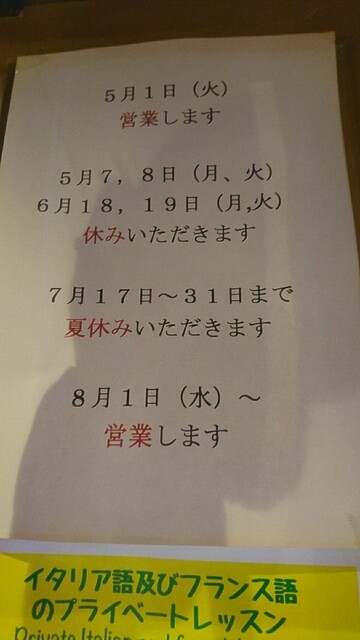 ５月１日（火）
営業します
５月７，８日（月、火）
６月１８，１９日（月,火）
休みいただきます
７月１７日～３１日まで
夏休みいただきます
８月１日（水）～
営業します
イタリア語及びフランス語
のプライベートレッスン
Private Italian and